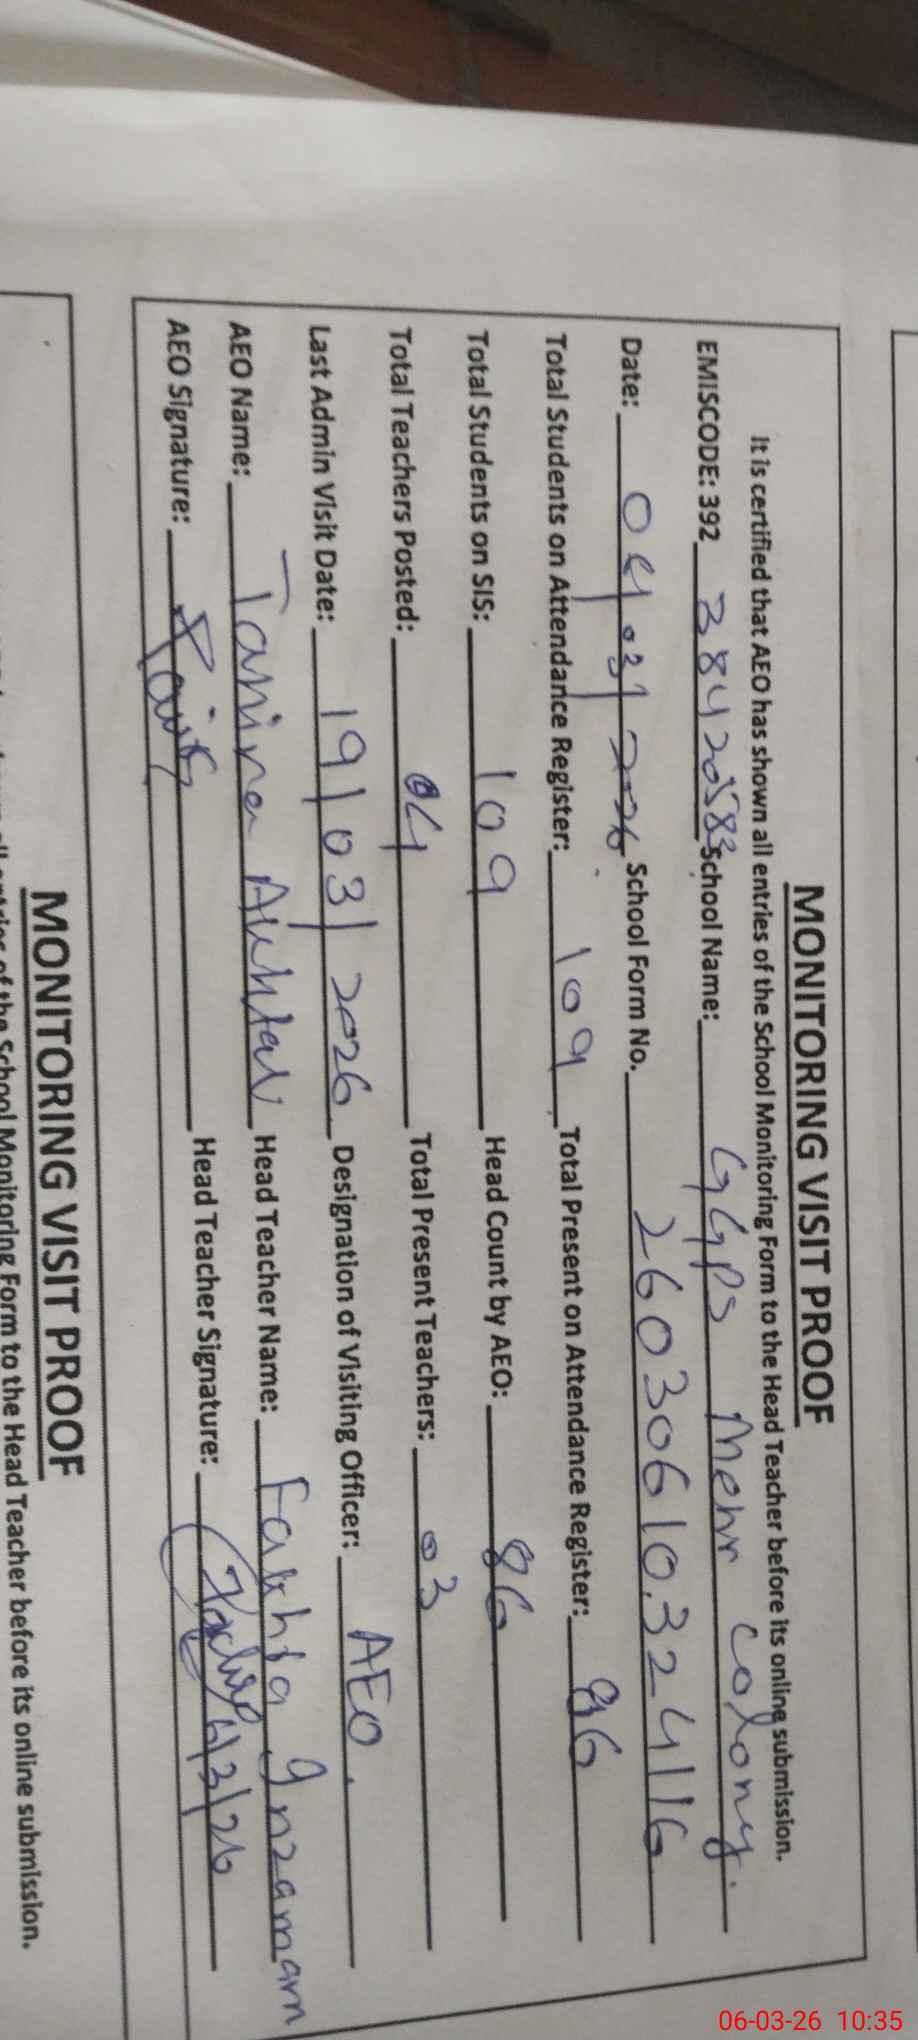 MONITORING VISIT PROOF
It is certified that AEO has shown all entries of the School Monitoring Form to the Head Teacher before its online submission.
EMISCODE: 392 38420583 School Name: GGPS Mehr Colony.
Date: 04/03/2026 School Form No. 26030610324116
Total Students on Attendance Register: 109 Total Present on Attendance Register: 86
Total Students on SIS: 109 Head Count by AEO: 86
Total Teachers Posted: 04 Total Present Teachers: 03
Last Admin Visit Date: 19/03/2026 Designation of Visiting Officer: AEO.
AEO Name: Akhtar Head Teacher Name: Inzamam
AEO Signature: Head Teacher Signature: 6/3/26
MONITORING VISIT PROOF
all entries of the School Monitoring Form to the Head Teacher before its online submission.
06-03-26 10:35